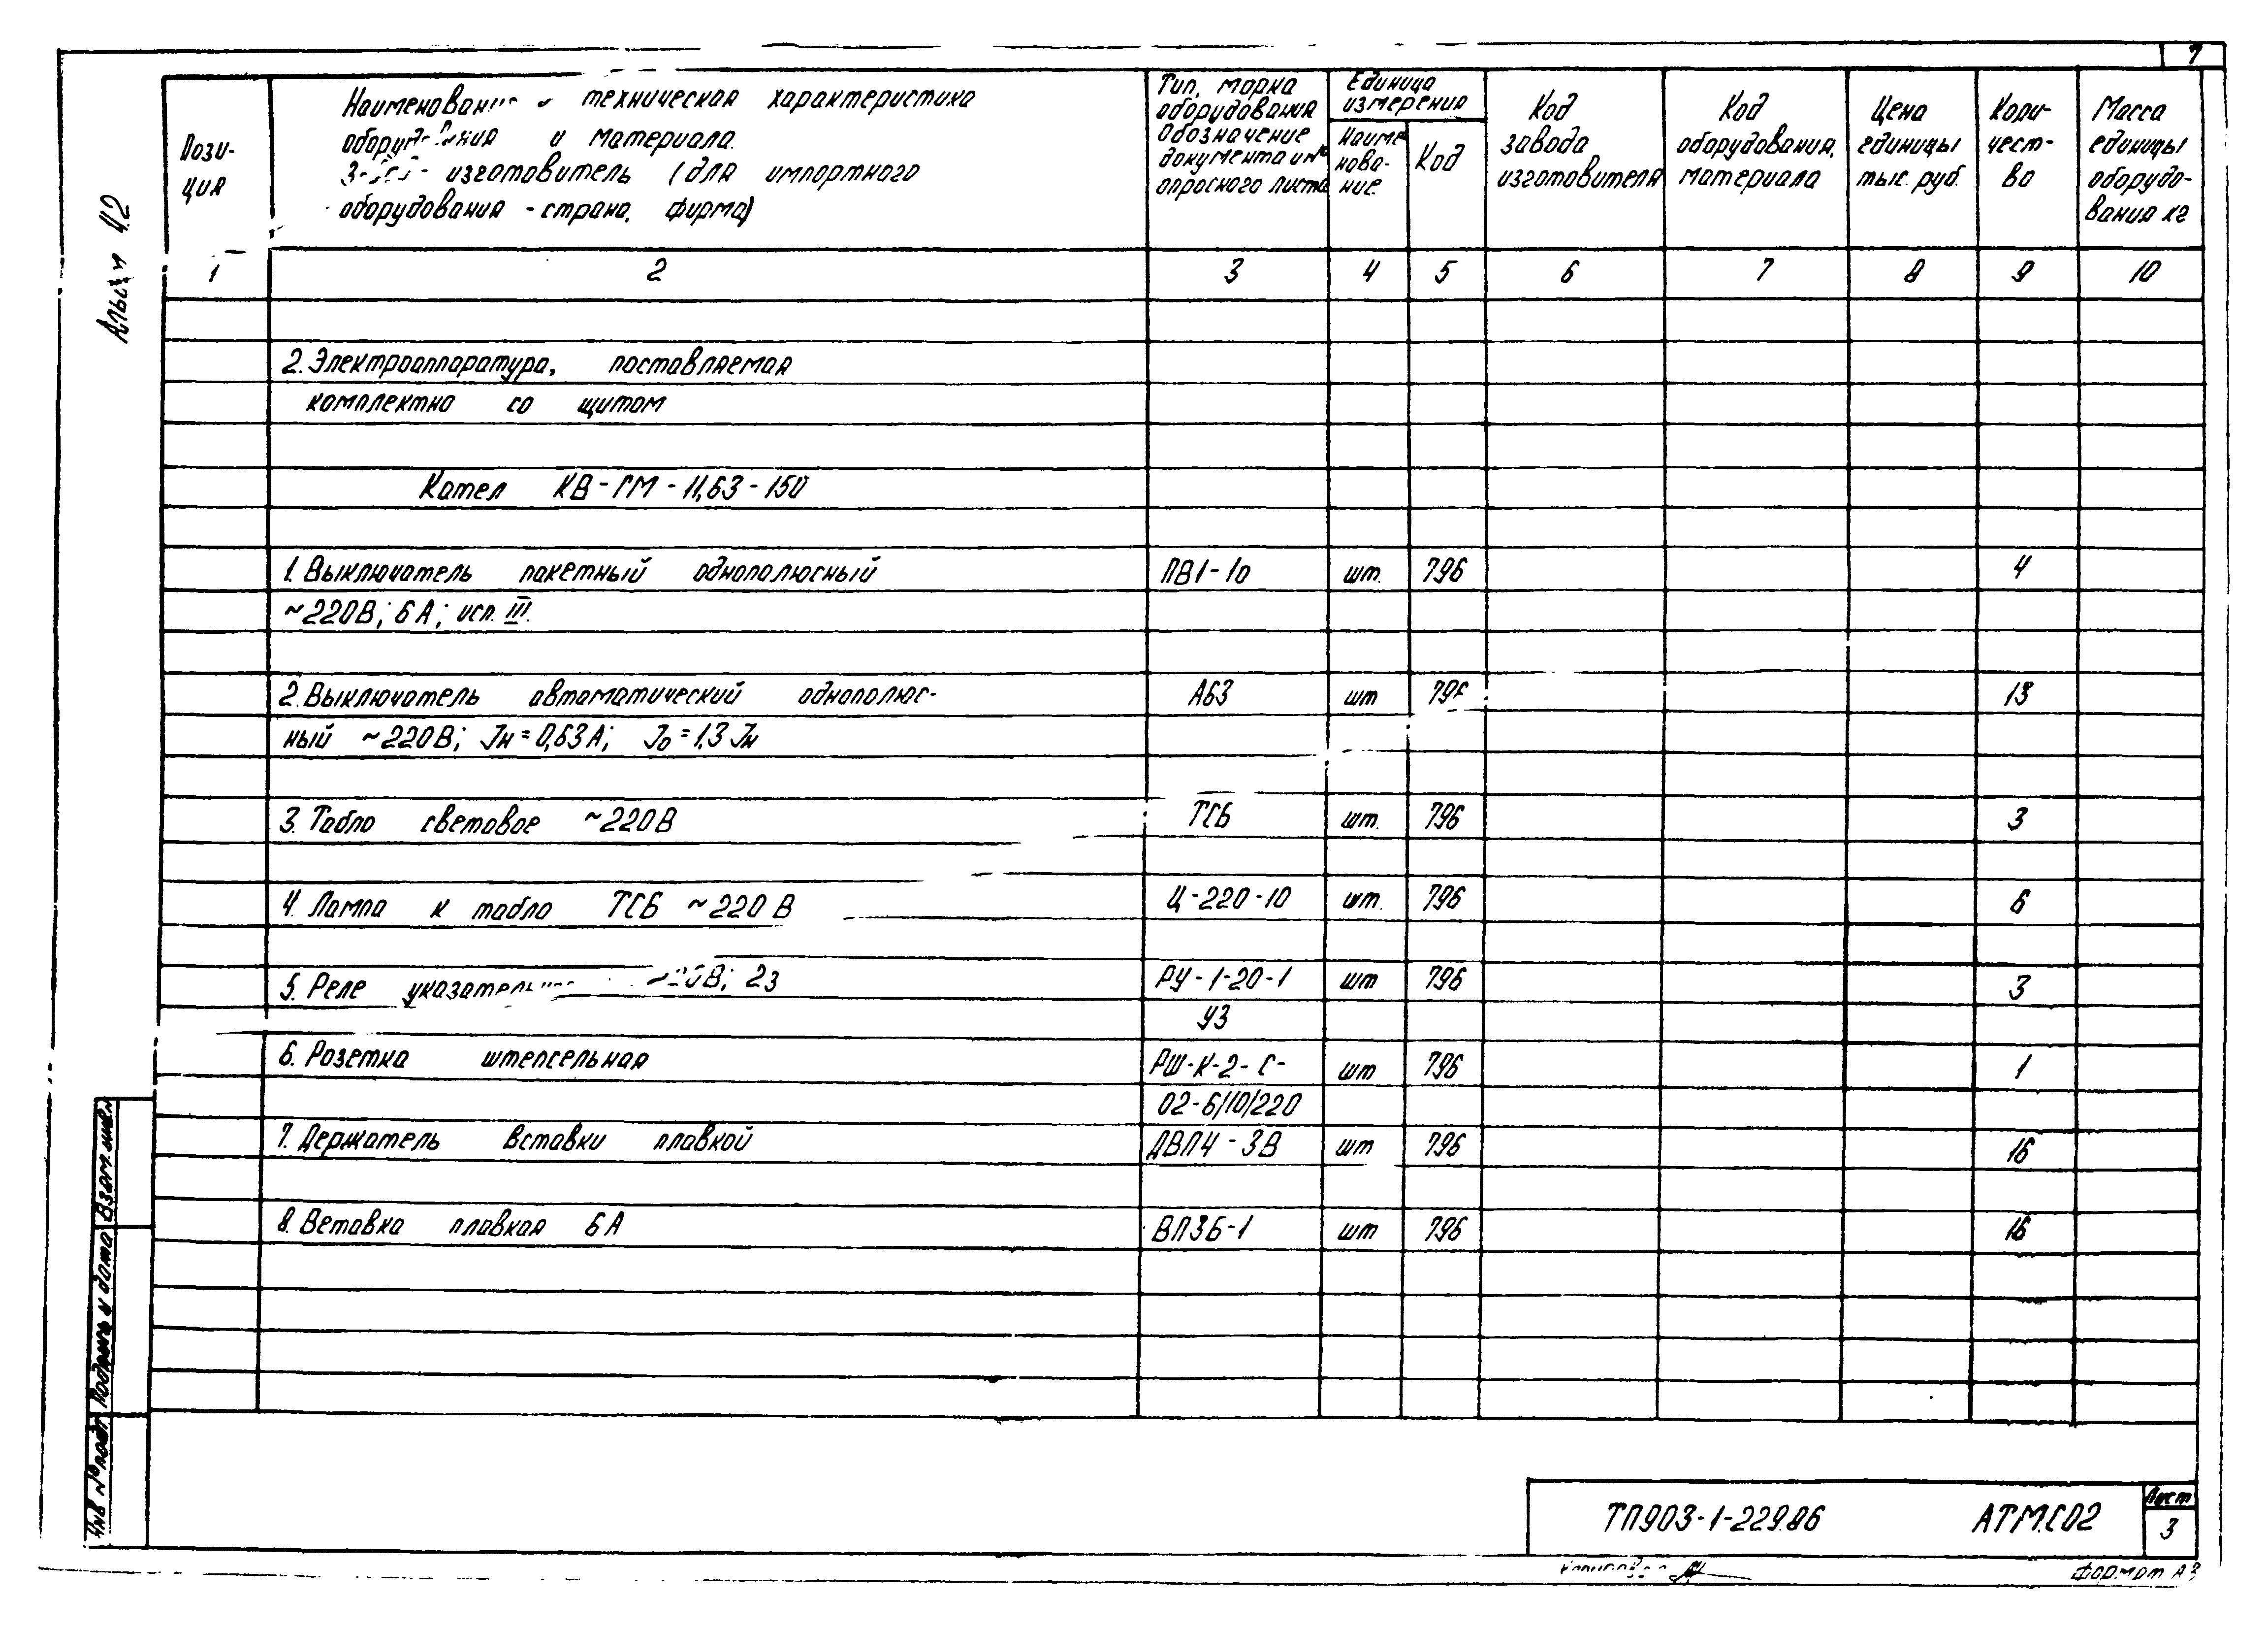 7
Альбом 4.2
Пози-
ция
Наименование и техническая характеристика
оборудования и материала.
изготовитель (для импортного
оборудования - страна, фирма)
Тип, марка
оборудования
Обозначение
документа и №
опросного листа
Единица
измерения
Наиме
нова-
ние.
Код
Код
завода
изготовителя
Код
оборудования,
материала
Цена
единицы
тыс. руб.
Коли-
чест-
во
Масса
единицы
оборудо-
вания кг
1 2 3 4 5 6 7 8 9 10
2. Электроаппаратура, поставляемая
комплектно со щитом
Котел КВ-ГМ-11,63-150
1. Выключатель пакетный однополюсный ПВ1-10 шт. 796 4
~220В; 6А; исп. III.
2. Выключатель автоматический однополюс- А63 шт 796 13
ный ~220В; Jн=0,63А; Jо=1,3Jн
3. Табло световое ~220В ТСБ шт. 796 3
4. Лампа к табло ТСБ ~220В Ц-220-10 шт. 796 6
5. Реле ~220В; 2з РУ-1-20-1 шт 796 3
У3
6. Розетка штепсельная РШ-К-2-С- шт 796 1
02-6/10/220
7. Держатель вставки плавкой ДВП4-3В шт 796 16
8. Вставка плавкая 6А ВП3Б-1 шт 796 16
Взам. инв. №
Подпись и дата
Инв № подл.
ТП903-1-229.86 АТМ.СО2
Лист
3
Копировал
Формат А3